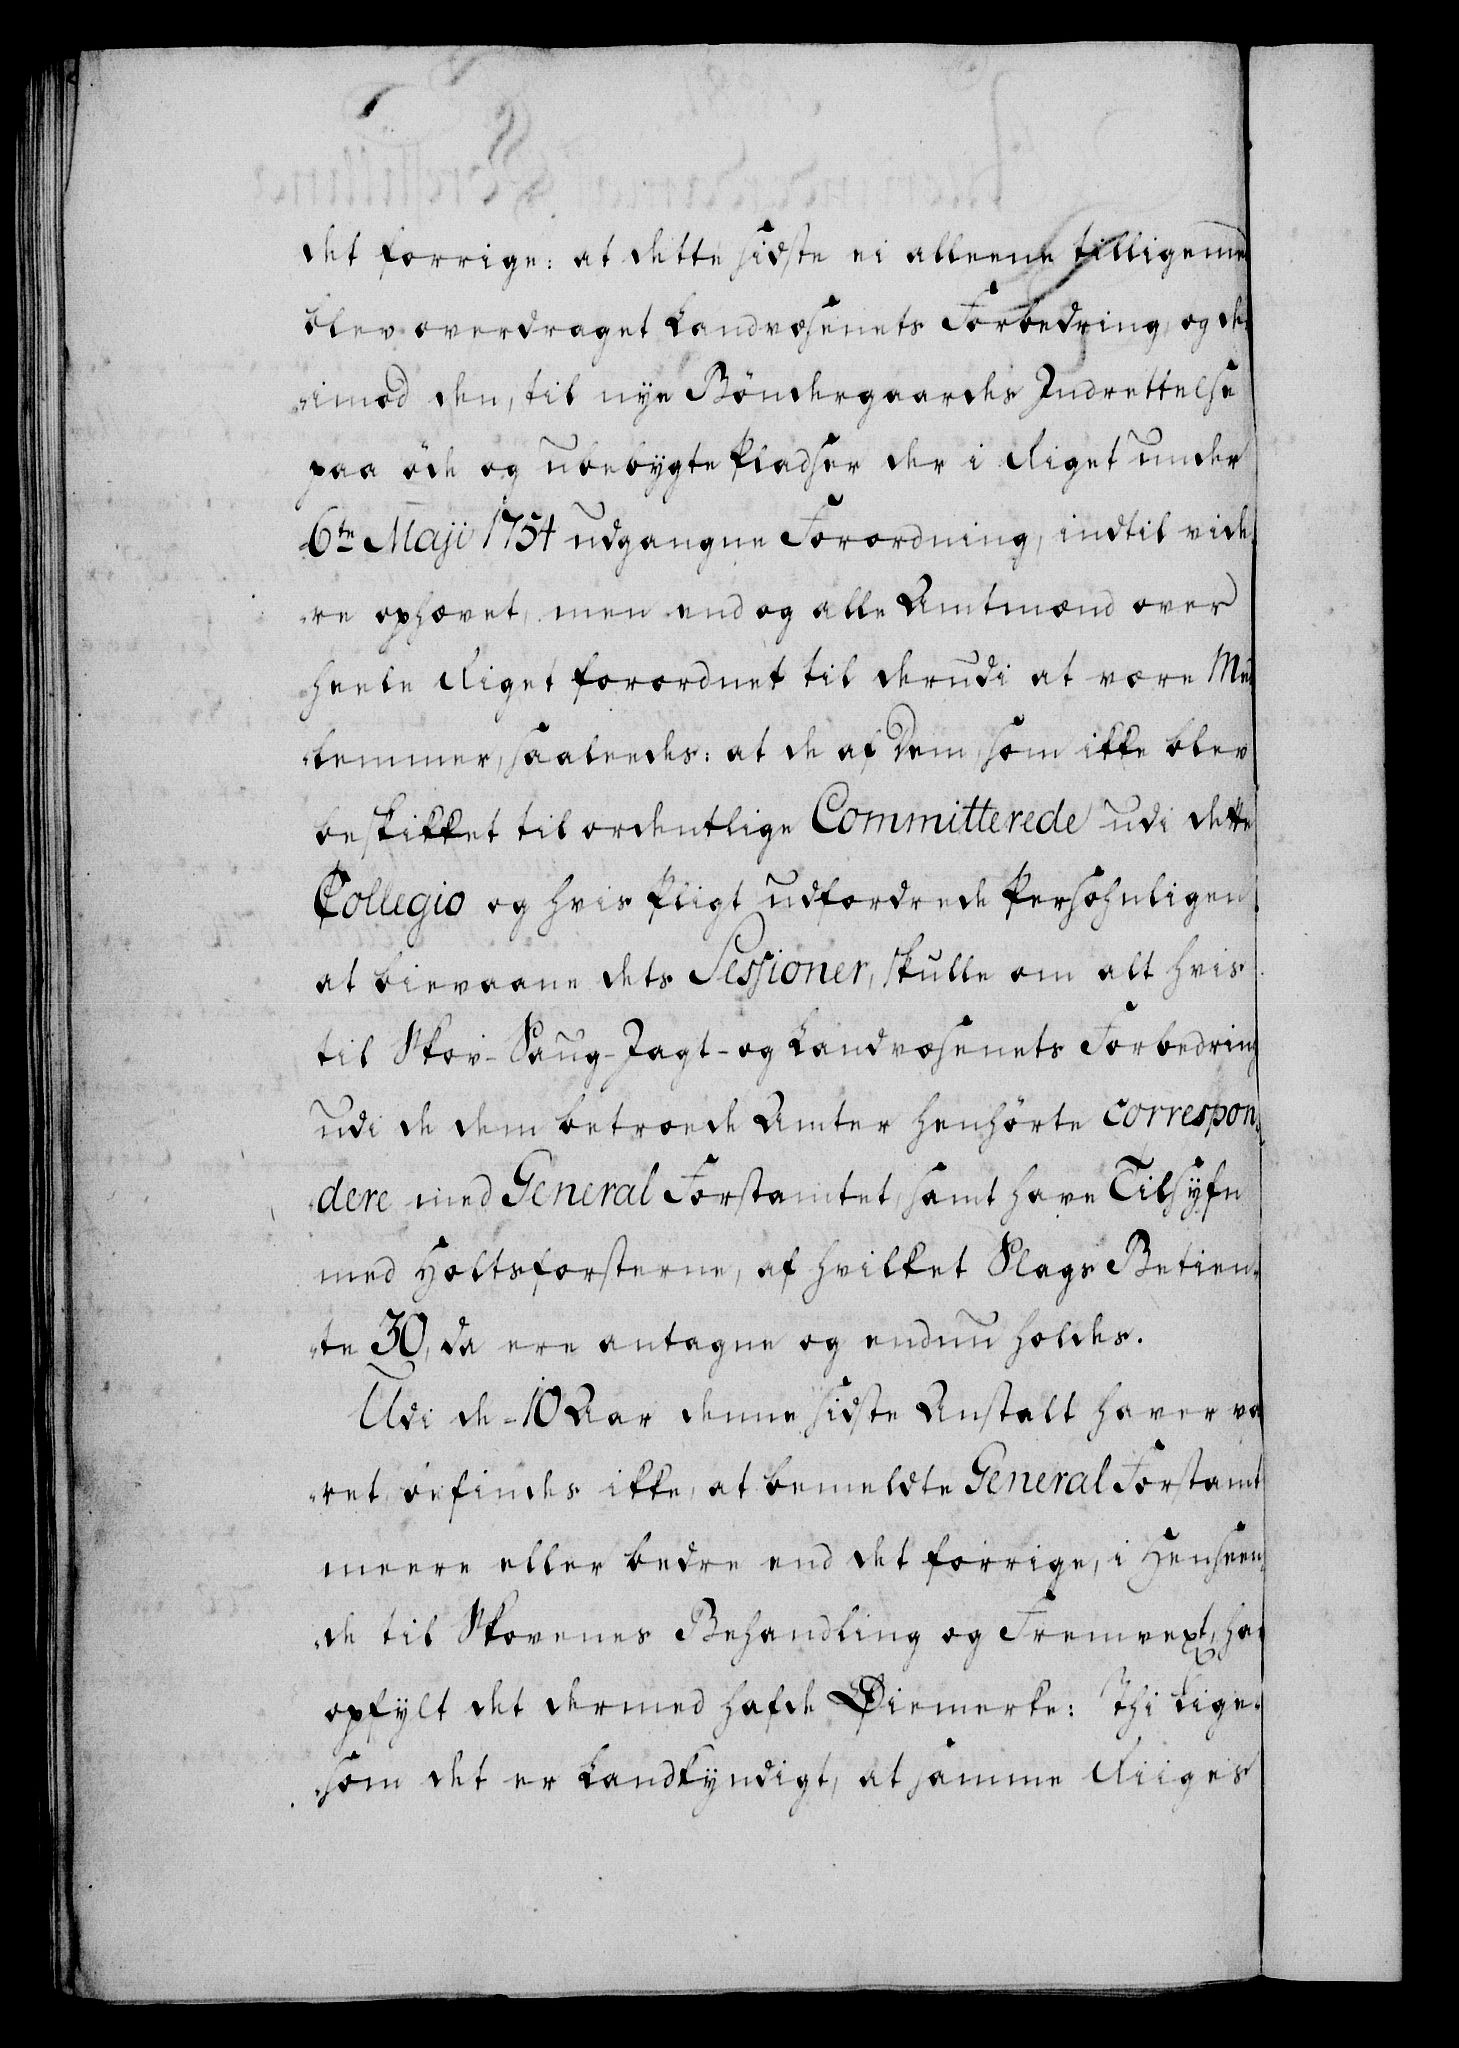 det forrige: at dette sidste ei alleene tilligemed
blev overdraget Landvæsenets Forbedring, og de
imod den, til nye Böndergaardes Indrettelse
paa öde og ubebygte Pladser der i Riget under
6te Maji 1754 udgangne Forordning, indtil vide
re ophævet, men end og alle Amtmænd over
heele Riget forordnet til derudi at være Med
lemmer, saaleedes: at de af Dem, som ikke blev
beskikket til ordentlige Committerede udi dette
Collegio og hvis Pligt udfordrede Persohnligen
at bievaane dets Sessioner, skulle om alt hvis
til Skov- Saug- Jagt- og Landvæsenets Forbedring
udi de dem betroede Amter henhörte correspon
dere med General Forstamtet, samt have Tilsyn
med Holtsforsterne, af hvilket Slags Betien
te 30, da ere antagne og endnu holdes.
Udi de 10 Aar denne sidste Anstalt haver væ
ret, befindes ikke, at bemeldte General Forstamt
meere eller bedre end det forrige, i Henseen
de til Skovenes Behandling og Fremvext, har
opfylt det dermed hafde Øiemerke: Thi lige
som det er Landkyndigt, at samme Riiges